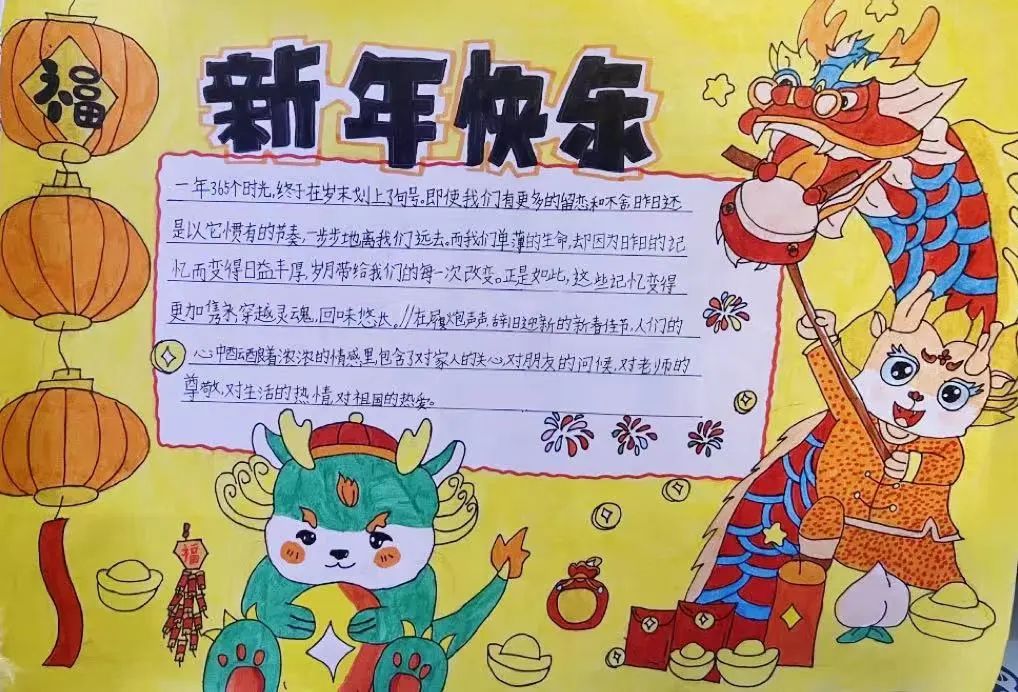 福
新年快乐
一年365个时光,终于在岁末划上了句号。即使我们有更多的留恋和不舍昨日还
是以它惯有的节奏,一步步地离我们远去。而我们单薄的生命,却因为昨日的记
忆而变得日益丰厚,岁月带给我们的每一次改变。正是如此,这些记忆变得
更加隽永,穿越灵魂,回味悠长。//在爆炮声声,辞旧迎新的新春佳节,人们的
心中酝酿着浓浓的情感里包含了对家人的关心,对朋友的问候,对老师的
尊敬,对生活的热情,对祖国的热爱。
福